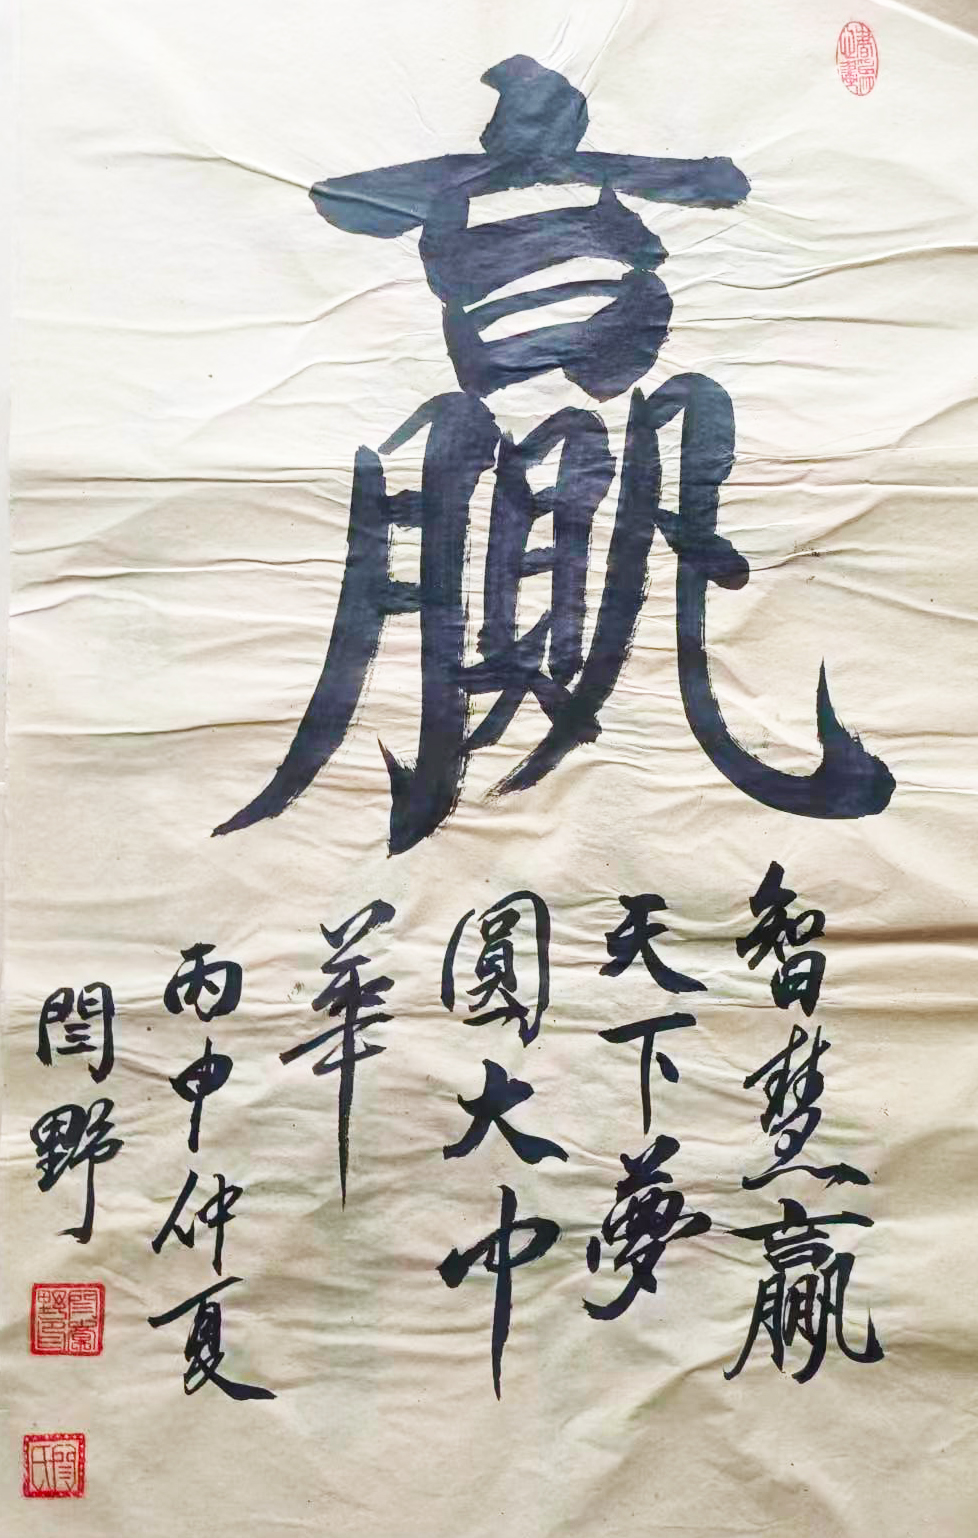 贏
智慧贏
天下夢
圓大中
華
丙申仲夏
閆野
閆氏